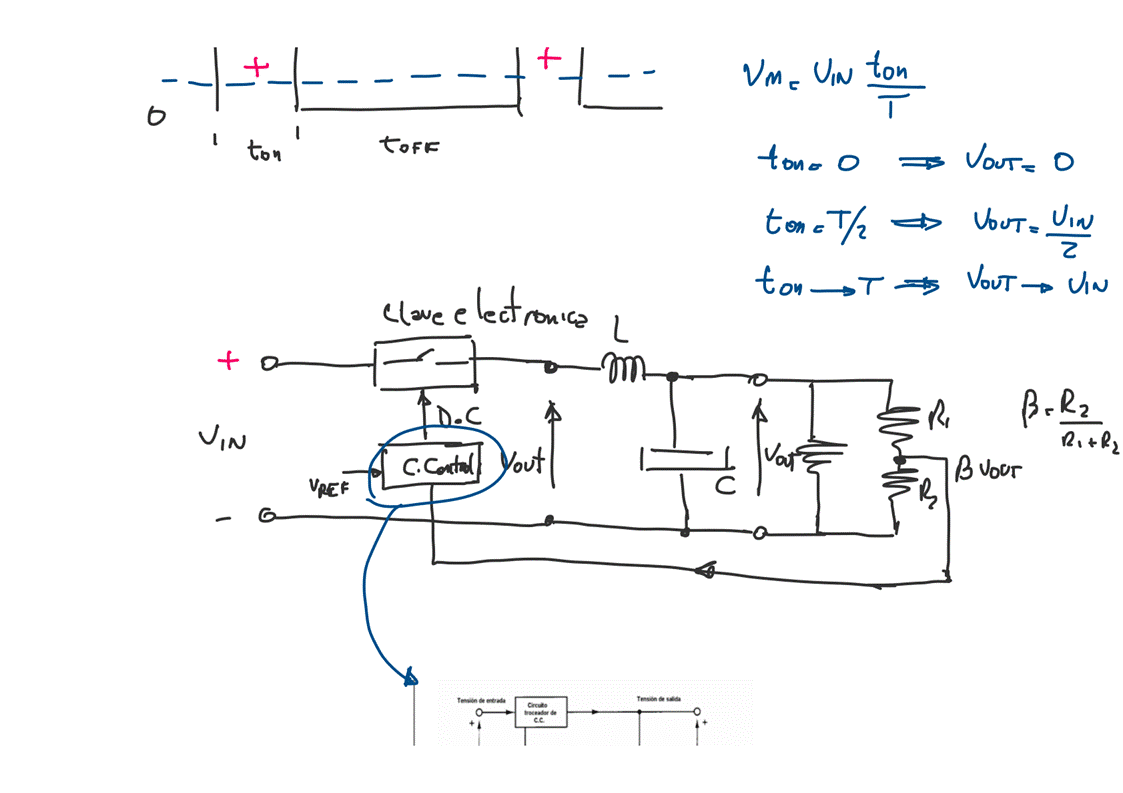 + +
0
ton tOFF
VM = VIN ton/T
ton = 0 ⇒ VOUT = 0
ton = T/2 ⇒ VOUT = VIN/2
ton → T ⇒ VOUT → VIN
Clave electronica
L
+
D.C
R1
β = R2/R1+R2
VIN
C.Control
Vout
Vout
β VOUT
VREF
C
R2
-
Tensión de entrada
Circuito
troceador de
C.C.
Tensión de salida
+
+